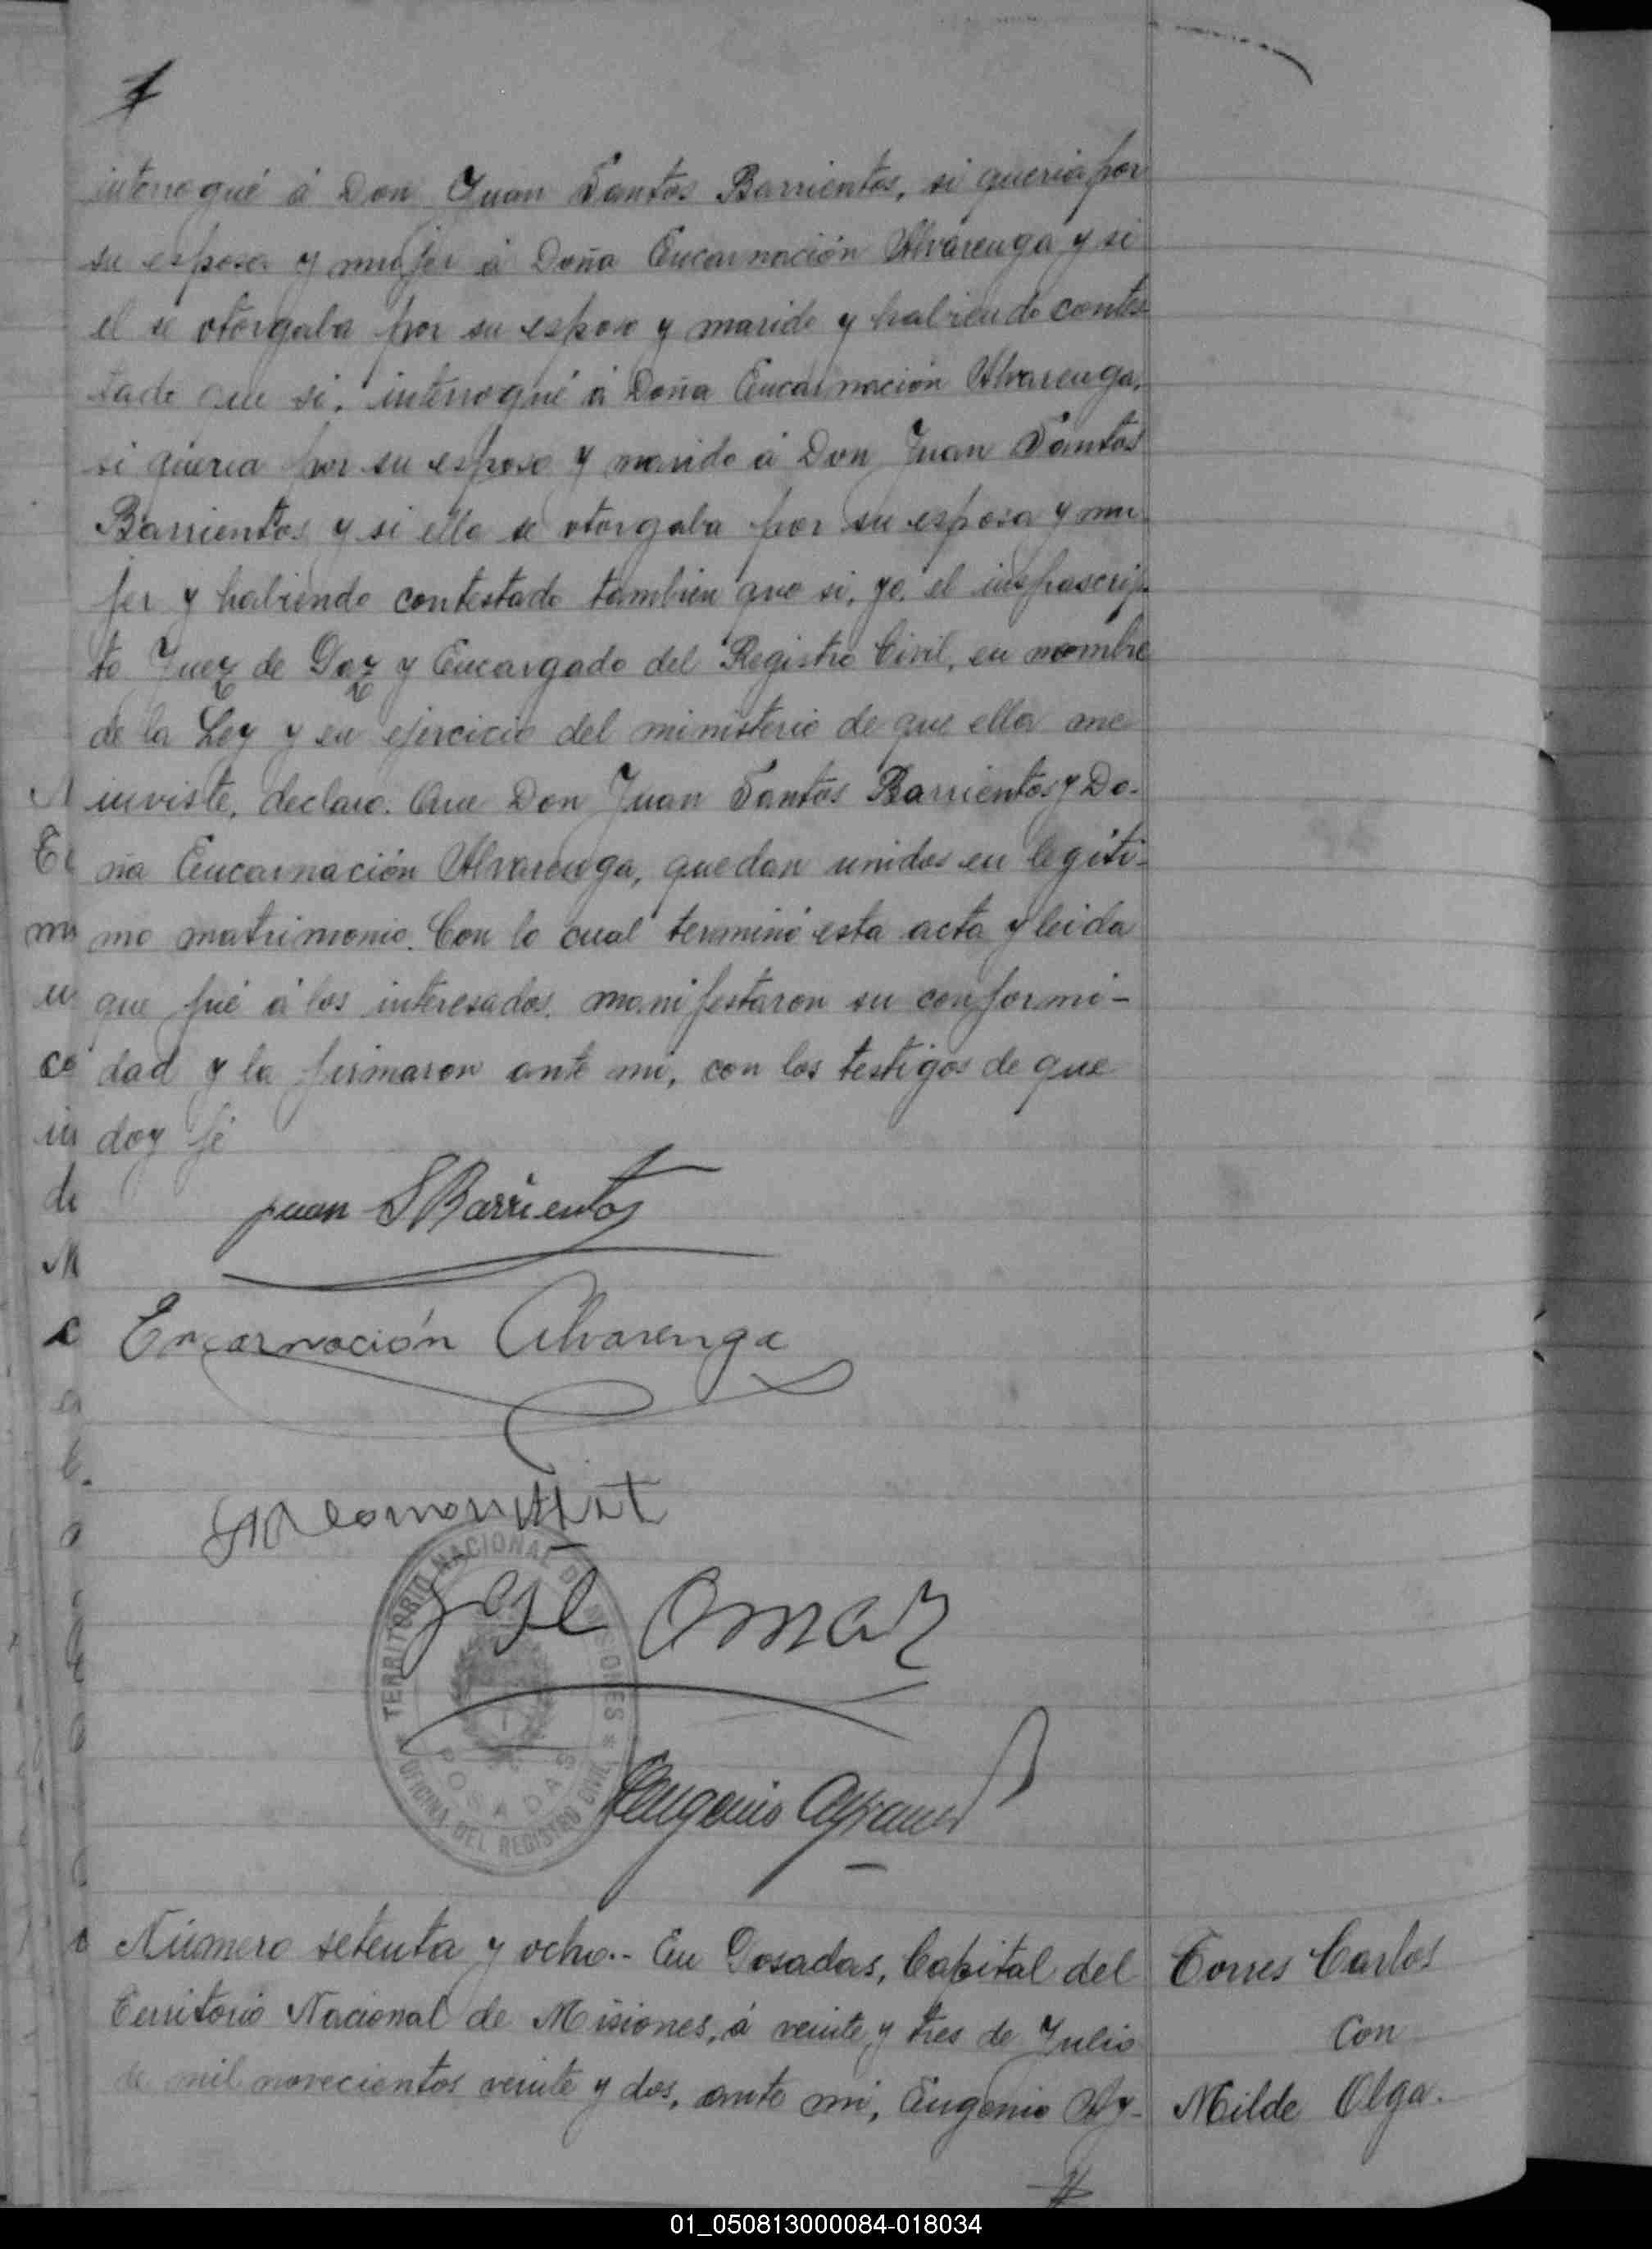 interrogué á Don Juan Santos Barrientos, si queria por
su esposa y mujer á Doña Encarnación Alvarenga y si
el se otorgaba por su esposo y marido y habiendo contes
tado que si, interrogué á Doña Encarnación Alvarenga,
si queria por su esposo y marido á Don Juan Santos
Barrientos y si ella se otorgaba por su esposa y mu-
jer y habiendo contestado tambien que si, yo, el infrascrip-
to Juez de Paz y Encargado del Registro Civil, en nombre
de la Ley y en ejercicio del ministerio de que ella me
inviste, declaro. Que Don Juan Santos Barrientos y Do-
ña Encarnación Alvarenga, quedan unidos en legiti-
mo matrimonio. Con lo cual terminó esta acta y leida
que fué á los interesados, manifestaron su conformi-
dad y la firmaron ante mi, con los testigos de que
doy fé
Juan S Barrientos
Encarnación Alvarenga
José Omar
TERRITORIO NACIONAL DE MISIONES
POSADAS
* OFICINA DEL REGISTRO CIVIL *
Eugenio
Número setenta y ocho.- En Posadas, Capital del
Territorio Nacional de Misiones, á veinte y tres de Julio
de mil novecientos veinte y dos, ante mi, Eugenio Ay-
Torres Carlos
con
Milde Olga.
01_050813000084-018034